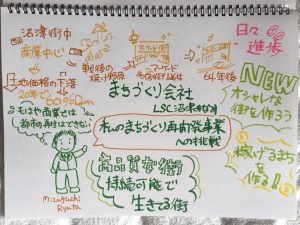 沼津街中
商業中心!
戦後の焼け野原
アーケード名店街誕生
64年後
日々進歩
土地価格の下落
20年で
もはや商業では
都市の再生はできない
まちづくり会社
LSC沼津
私のまちづくり再創造事業
への挑戦
高品質な街
持続可能で
生きてる街
NEW
オシャレな
街を作ろう
稼げるまち
を作る!
Mizuguchi
Ryuta